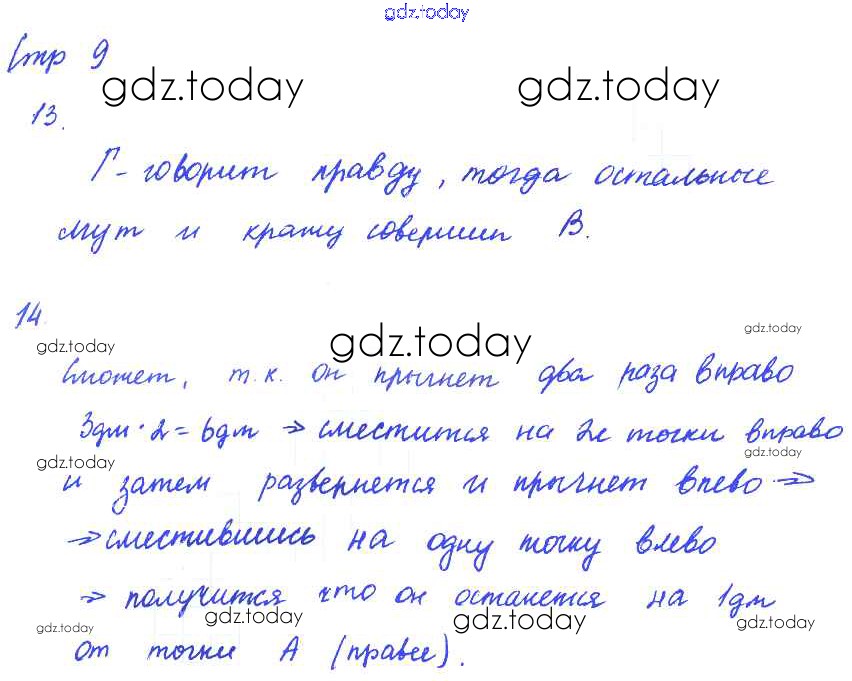 gdz.today
Стр 9
gdz.today gdz.today
13.
Г-говорит правду, тогда остальные
лгут и кражу совершил В.
14.
gdz.today gdz.today gdz.today
Сможет, т.к. он прыгнет два раза вправо
3дм·2=6дм → сместится на 2е точки вправо
gdz.today gdz.today
и затем развернется и прыгнет влево →
→ сместившись на одну точку влево
→ получится что он останется на 1дм
gdz.today gdz.today gdz.today gdz.today
от точки А (правее).